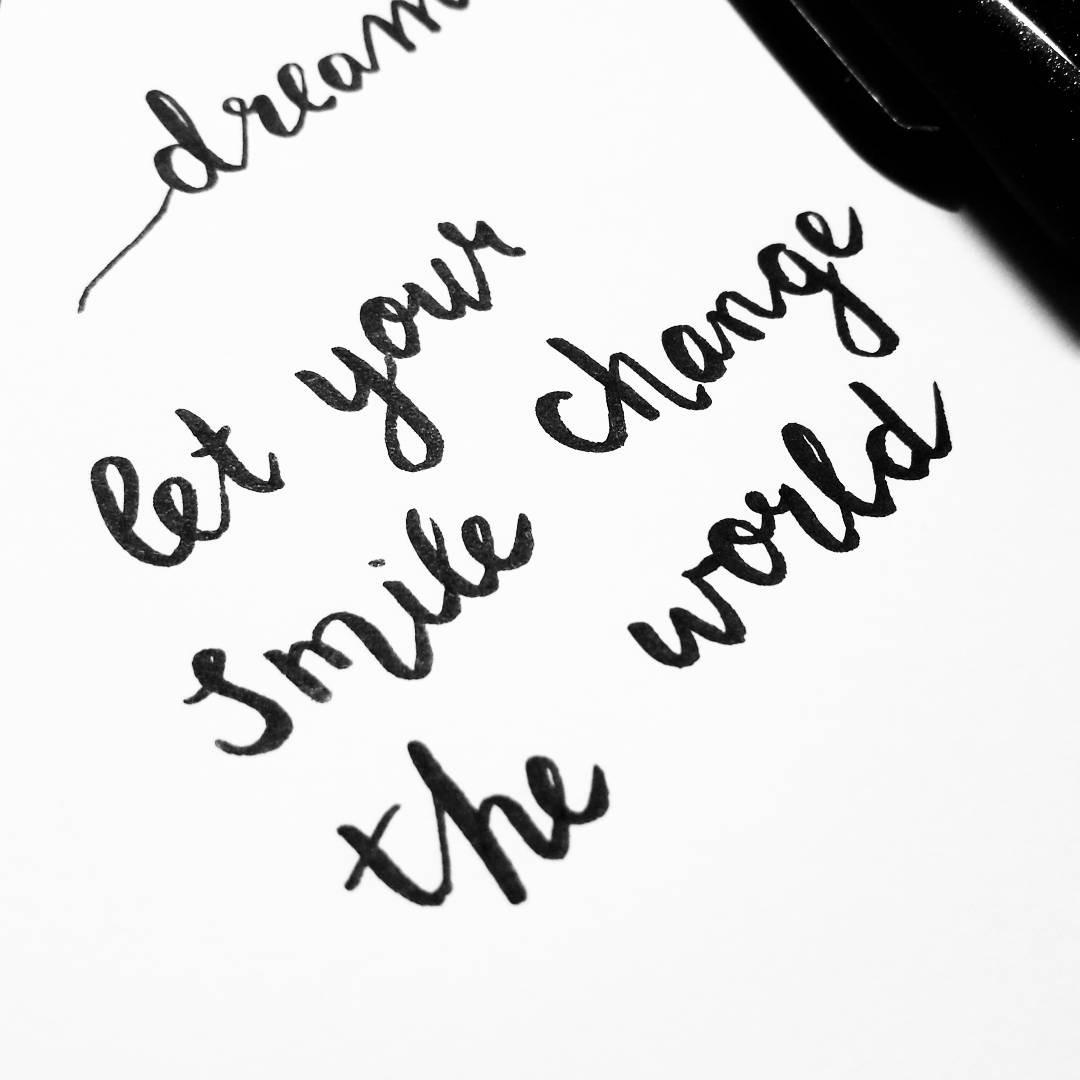 dream
let your
smile change
the world